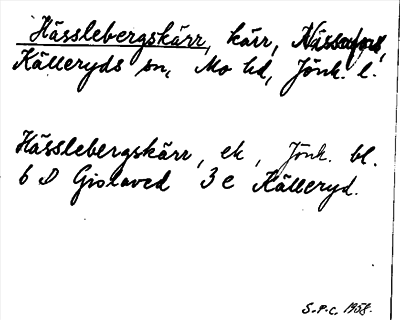 Hässlebergskärr, kärr,
Källeryds sn, Mo hd, Jönk. l.
Hässlebergskärr, ek, Jönk. bl.
6 D Gislaved 3 e Källeryd.
S.P.C. 1958.